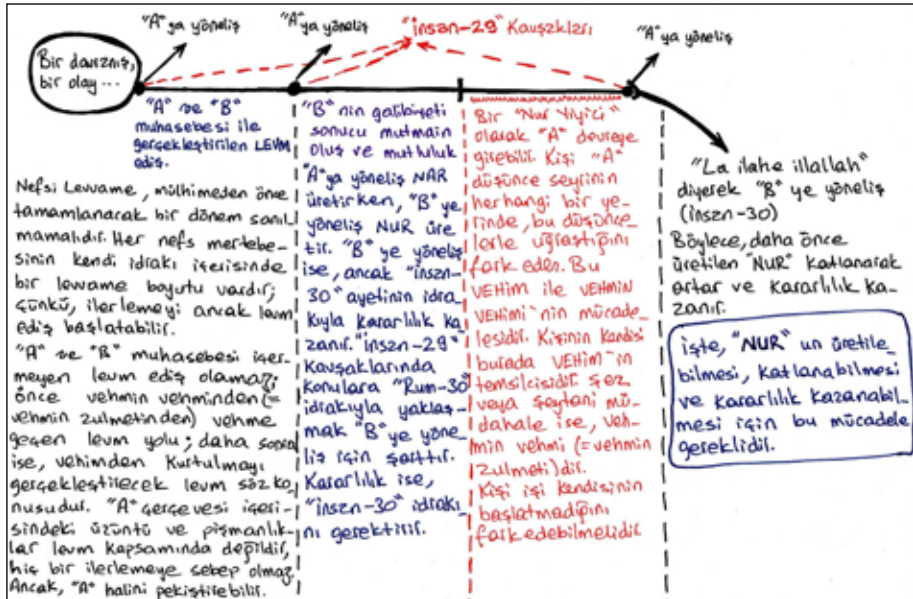 "A"ya yöneliş
"A"ya yöneliş
"İnsan-29" Kavşakları
"A"ya yöneliş
Bir davranış,
bir olay ...
"A" ve "B"
muhasebesi ile
gerçekleştirilen LEVM
ediş.
Nefsi Levvame, mülhimeden önce
tamamlanarak bir dönem sanıl_
mamalıdır. Her nefs mertebe_
sinin kendi idrakı içerisinde
bir levvame boyutu vardır;
çünkü, ilerlemeyi ancak levm
ediş başlatabilir.
"A" ve "B" muhasebesi içer_
meyen levm ediş olamaz;
önce vehmin vehminden (=
vehmin zulmetinden) vehme
geçen levm yolu; daha sonra
ise, vehimden kurtulmayı
gerçekleştirecek levm söz ko_
nusudur. "A" çerçevesi içeri_
sindeki üzüntü ve pişmanlık_
lar levm kapsamında değildir,
hiç bir ilerlemeye sebep olmaz.
Ancak, "A" halini pekiştirebilir.
"B" nin galibiyeti
sonucu mutmain
oluş ve mutluluk
"A"ya yöneliş NAR
üretirken, "B"ye
yöneliş NUR üre_
tir. "B"ye yöneliş
ise, ancak "insan-
30" ayetinin idra_
kıyla kararlılık ka_
zanır. "insan-29"
Kavşaklarında
konulara "Rum-30"
idrakıyla yaklaş_
mak "B"ye yöne_
liş için şarttır.
Kararlılık ise,
"insan-30" idrakı_
nı gerektirir.
Bir "Nur Yiyici"
olarak "A" devreye
girebilir. Kişi "A"
düşünce seyrinin
herhangi bir ye_
rinde, bu düşünce_
lerle uğraştığını
fark eder. Bu
VEHİM ile VEHMİN
VEHMİ'nin mücade_
lesidir. Kişinin kendisi
burada VEHİM'in
temsilcisidir. Şez
veya şeytani mü_
dahale ise, veh_
min vehmi (=vehmin
zulmeti)dir.
Kişi işi kendisinin
başlatmadığını
fark edebilmelidir
"La ilahe illallah"
diyerek "B" ye yöneliş
(insan-30)
Böylece, daha önce
üretilen "NUR" katlanarak
artar ve kararlılık ka_
zanır.
işte, "NUR" un üretile_
bilmesi, katlanabilmesi
ve kararlılık kazanabil_
mesi için bu mücadele
gereklidir.